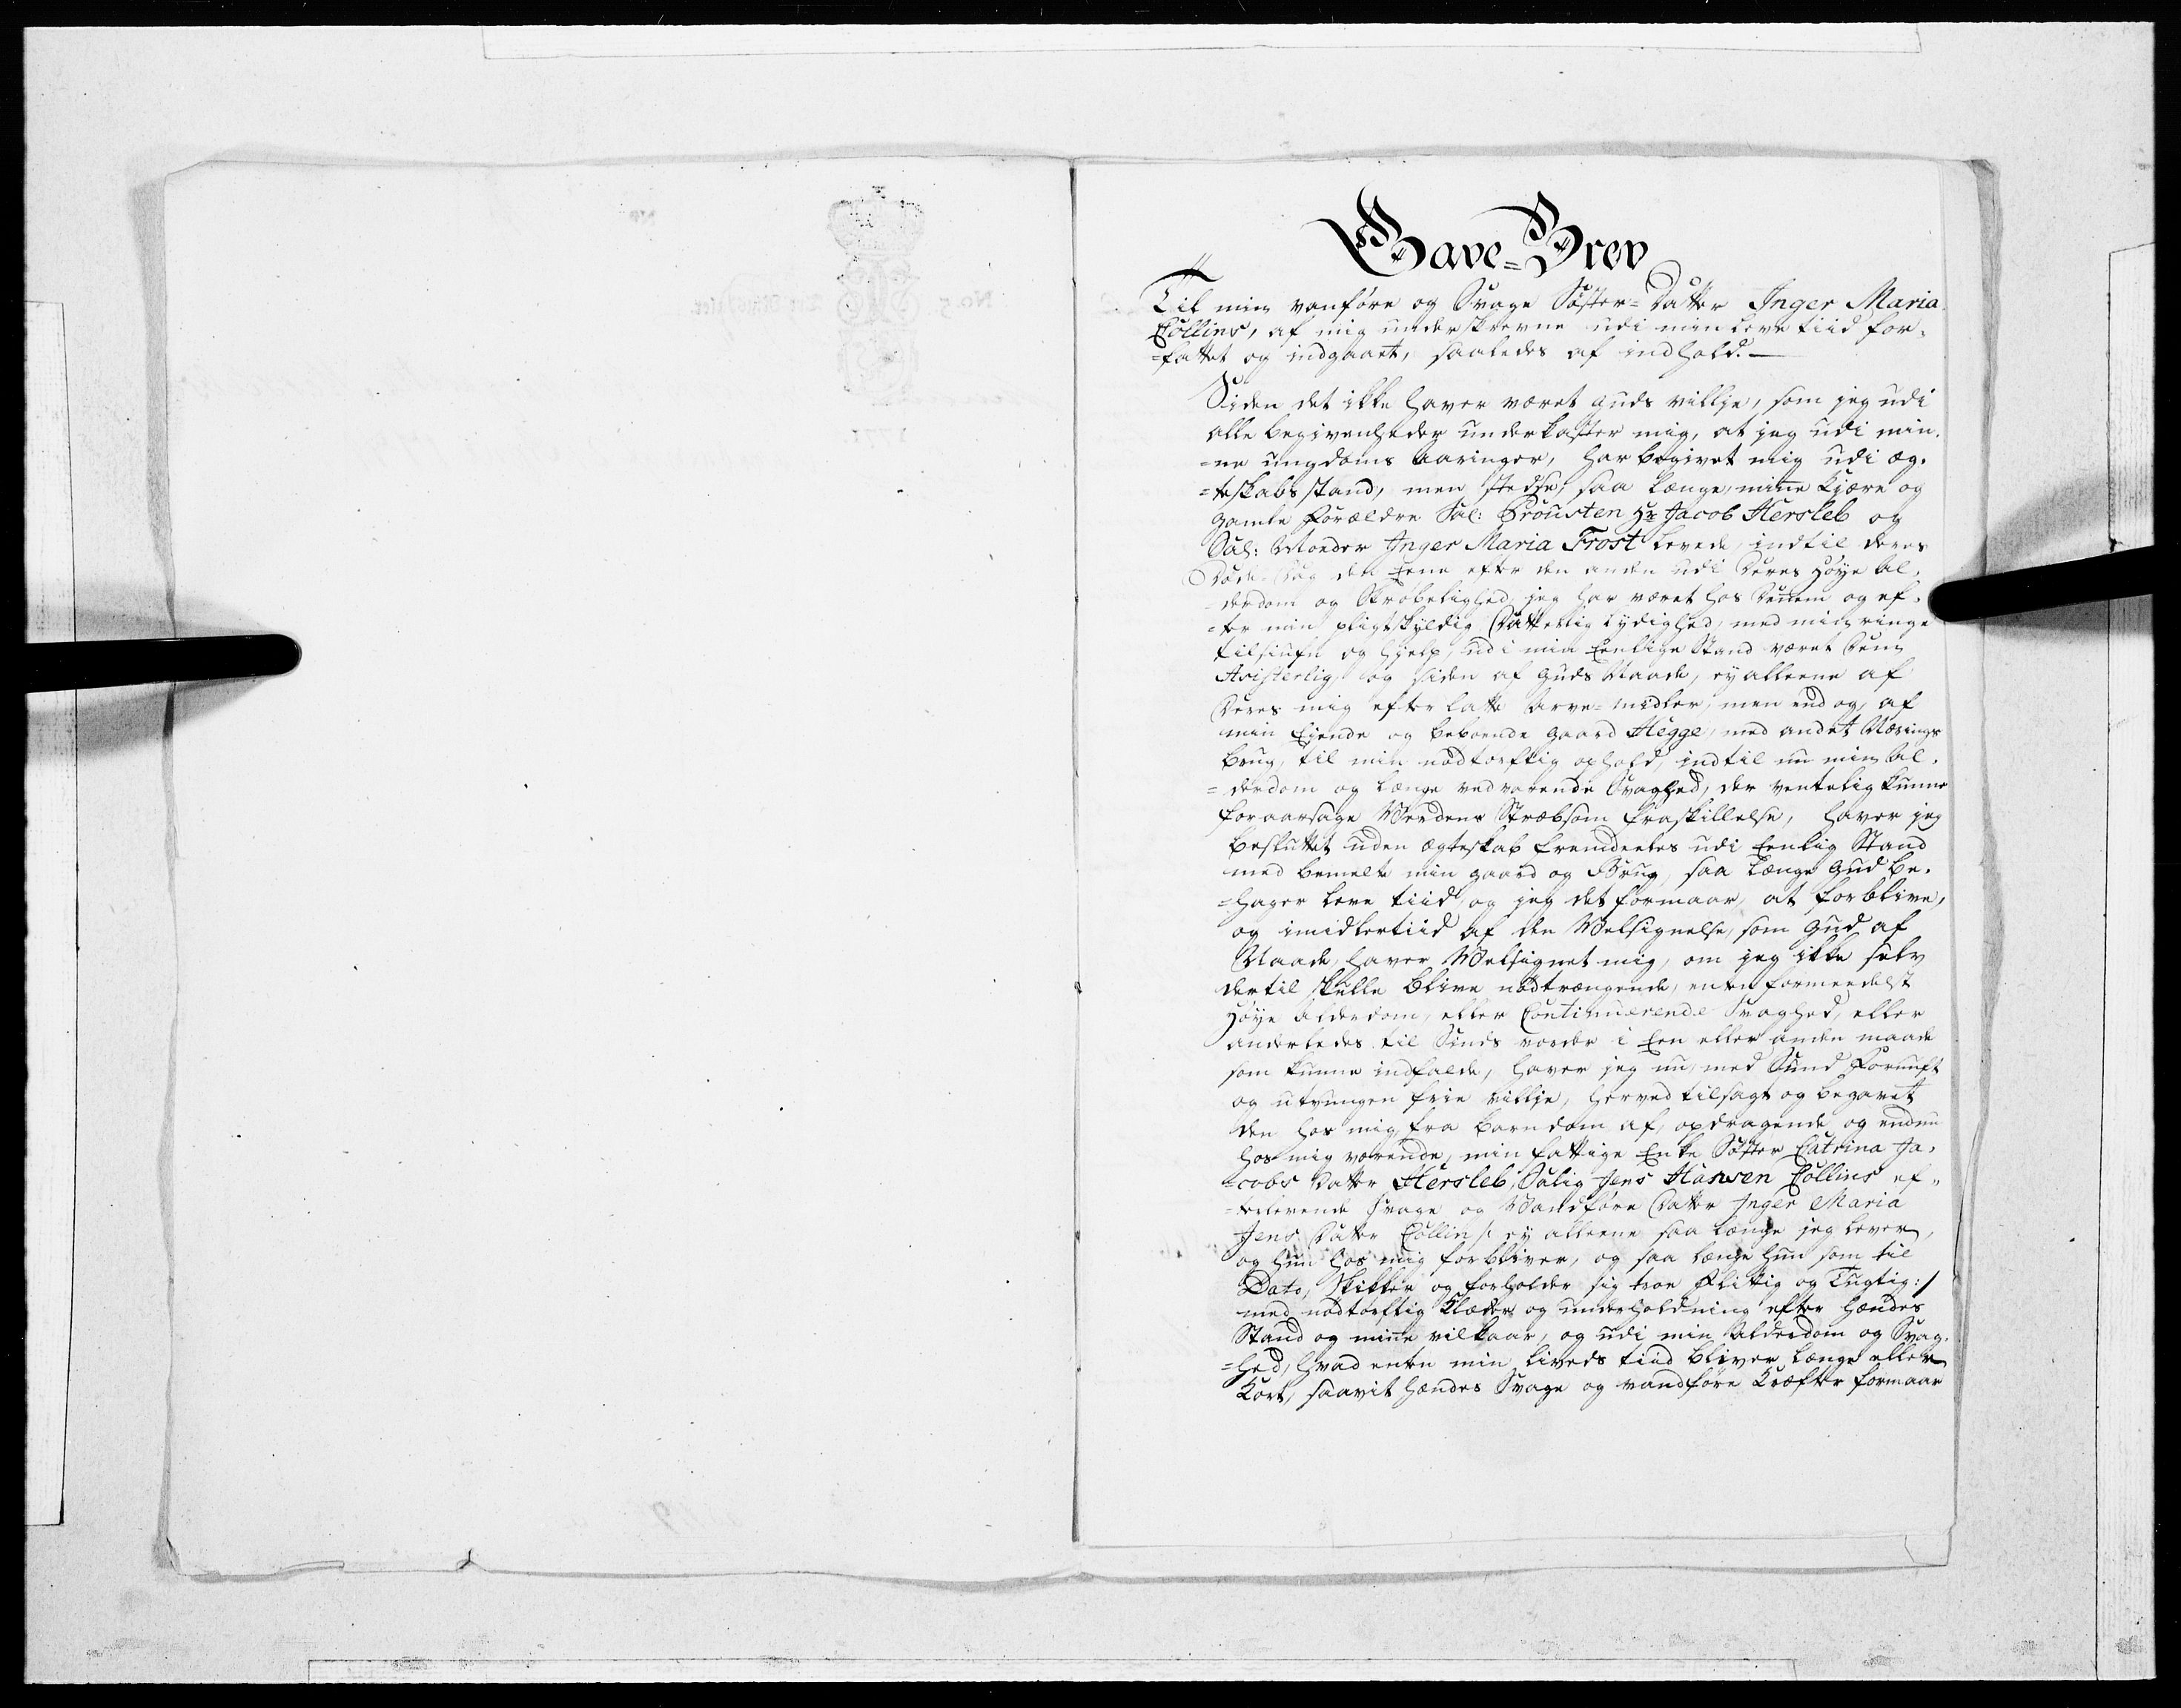 Gave-Brev
Til min vanföre og Svage Söster-Datter Inger Maria
Collins, af mig underskrevne udi min leve tiid for-
=fattet og indgaaet, saaledes af indhold.
Siden det ikke haver været Guds villje, som jeg udi
alle begivenheder underkaster mig, at jeg udi min-
=ne ungdoms aaringer, har begivet mig udi æg-
=teskabs stand, men stedse, saa længe, mine kjære og
gamle Forældre Sal: Provsten Hr Jacob Hersleb og
Sal: Moeder Inger Maria Frost levede, indtil deres
Döde-Dag den Eene efter den anden udi Deres Höye Al-
=derdom og Skröbelighed, jeg har været hos Dennem og ef-
=ter min pligtskyldig Datterlig lydighed, med min ringe
tilsiufn og hjelp, udi min Eenlige Stand været Dem
Assisterlig, og siden af Guds Naade, ey alleene af
Deres mig efterlatte Arve-midler, men end og, af
min Eyende og beboende gaard Hegge, med andet Nærings
brug, til min nödtorftig ophold, indtil nu min Al-
=derdom og længe vedvarende Svaghed, der ventelig kunne
foraarsage Werdens Stræbsom fraskillelse, haver jeg
besluttet uden ægteskab fremdeeles udi Eenlig Stand
med bemelte min gaard og Brug, saa længe Gud be-
=hager leve tiid, og jeg det formaar, at forblive,
og imidlertiid af den Welsignelse, som Gud af
Naade, haver Welsignet mig, om jeg ikke selv
dertil skulle blive nödtrængende, enten formeedelst
Höye Alderdom, eller Continuerende Svaghed, eller
anderledes til Sinds vorder i Een eller anden maade
som kunne indfalde, haver jeg nu, med Sund Fornuft
og utvungen frie villje, herved tilsagt og begavet
den hos mig, fra barndom af, opdragende og endnu
hos mig værende, min fattige Enke Söster Catrina Ja-
=cobs Datter Hersleb, Salig Jens Hansen Collins ef-
=terlevende Svage og Wandföre Datter Inger Maria
Jens Datter Collin /: ey alleene saa længe jeg lever,
og hun hos mig forbliver, og saa længe hun som til
Dato, Skikker og forholder sig troe Flittig og Tugtig:/
med nödtorftig Klæder og underholdning efter hændes
Stand og mine vilkaar, og udi min Alderdom og Svag-
=hed, hvad enten min livsds tiid bliver længe eller
Kort, saavit hændes Svage og vandföre Kræfter formaar